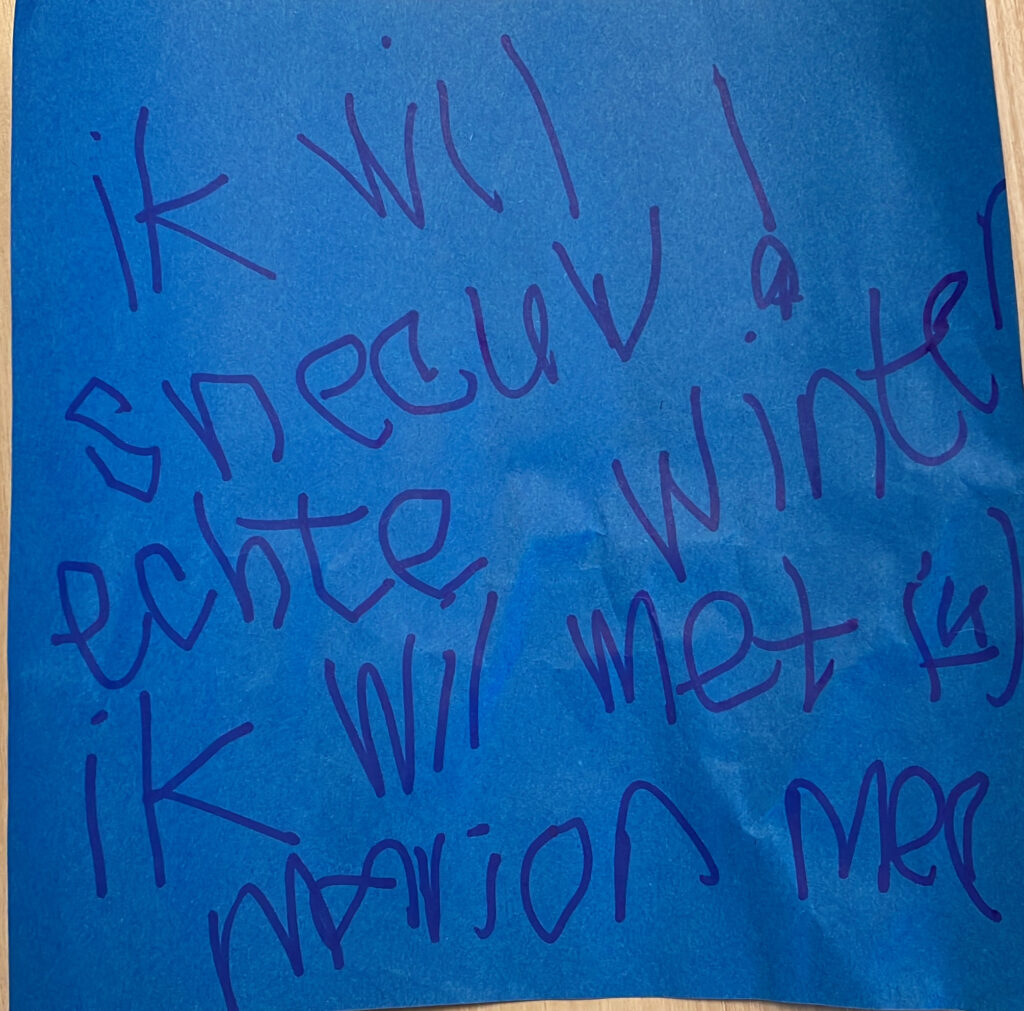 ik wil !
sneeuw
echte winter
ik wil met
marion mee